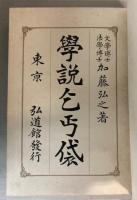 文學博士
法學博士
加藤弘之著
學説乞丐袋
東京 弘道館發行